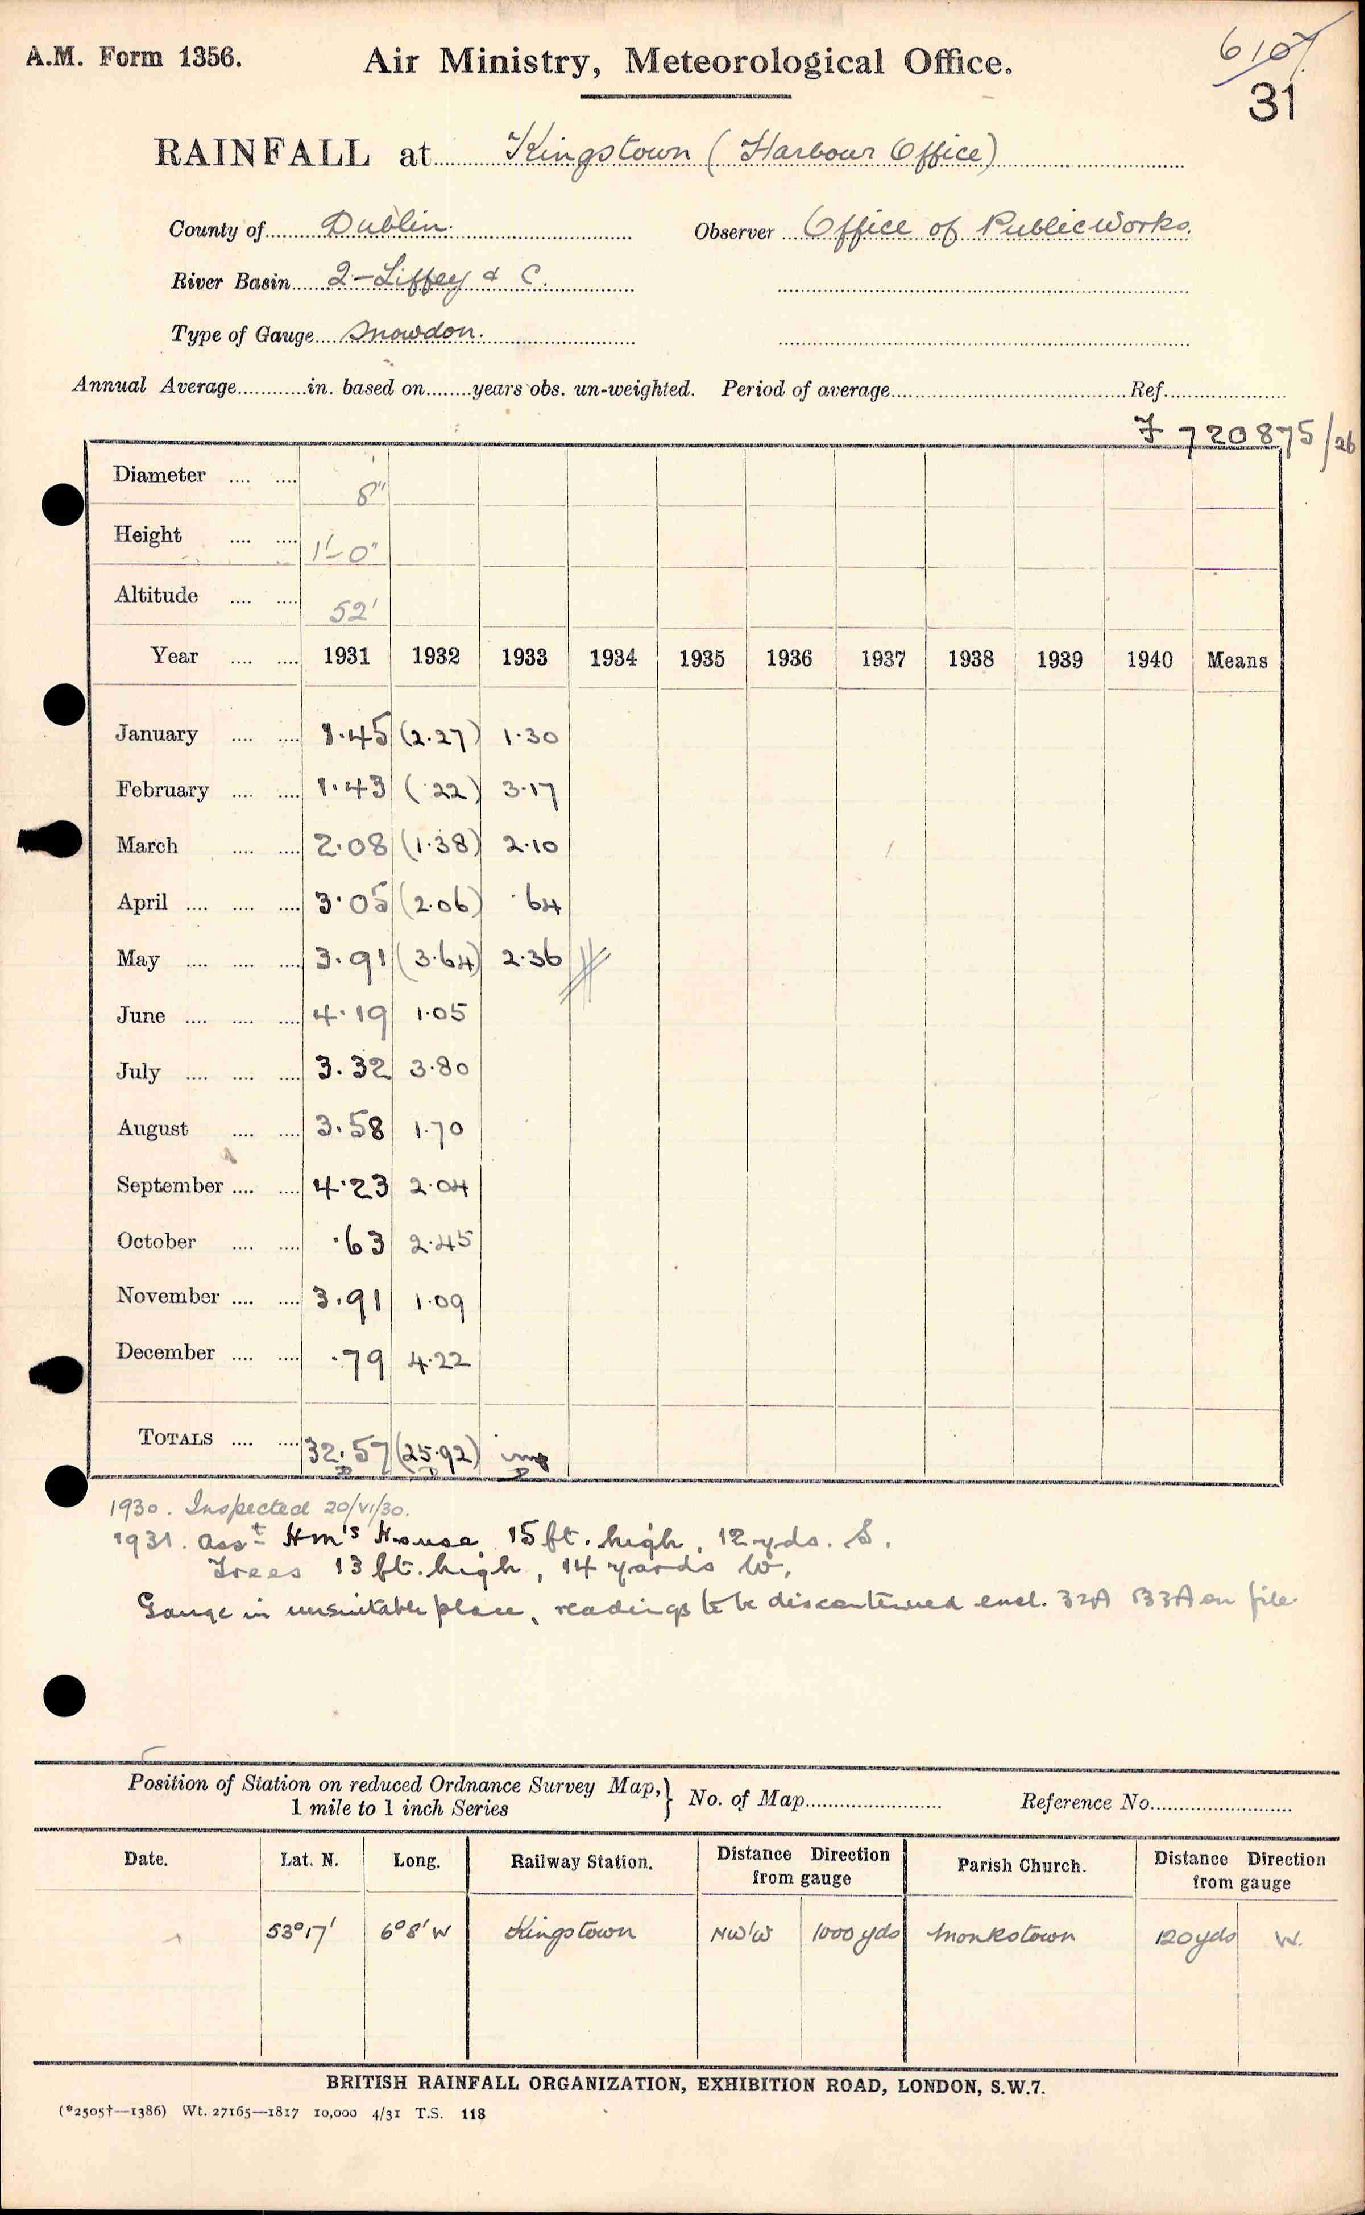 A.M. Form 1356.
Air Ministry, Meteorological Office.
6107
31
RAINFALL at Kingstown (Harbour Office)
County of Dublin. Observer Office of Public Works.
River Basin 2-Liffey & C.
Type of Gauge Snowdon.
Annual Average............in. based on........years obs. un-weighted. Period of average............Ref............
720875/26
Diameter .... .... 8"
Height .... .... 1'-0"
Altitude .... .... 52'
Year .... .... 1931 1932 1933 1934 1935 1936 1937 1938 1939 1940 Means
January .... .... 1.45 (2.27) 1.30
February .... .... 1.43 (.22) 3.17
March .... .... 2.08 (1.38) 2.10
April .... .... .... 3.05 (2.06) .64
May .... .... .... 3.91 (3.64) 2.36
June .... .... .... 4.19 1.05
July .... .... .... 3.32 3.80
August .... .... 3.58 1.70
September .... .... 4.23 2.04
October .... .... .63 2.45
November .... .... 3.91 1.09
December .... .... .79 4.22
TOTALS .... .... 32.57 (25.92) imp
D D D
1930. Inspected 20/VI/30.
1931. Asst Hm's House 15 ft. high, 12 yds. S.
Trees 13 ft. high, 14 yards W.
Gauge in unsuitable place, readings to be discontinued encl. 32A 33A on file
Position of Station on reduced Ordnance Survey Map,} No. of Map........................ Reference No........................
1 mile to 1 inch Series
Date. Lat. N. Long. Railway Station. Distance Direction from gauge Parish Church. Distance Direction from gauge
53°17' 6°8'W Kingstown NW'W 1000 yds Monkstown 120 yds W.
BRITISH RAINFALL ORGANIZATION, EXHIBITION ROAD, LONDON, S.W.7.
(*2505†—1386) Wt. 27165—1817 10,000 4/31 T.S. 118